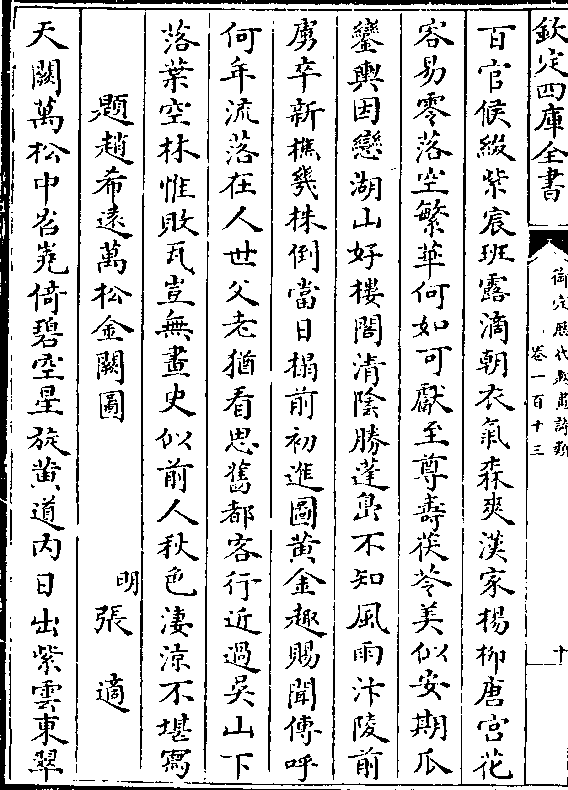 欽定四庫全書
御定歷代題畫詩類
卷一百十三
十
百官候綴紫宸班露滴朝衣氣森爽漢家楊柳唐宮花
容易零落空繁華何如可獻至尊壽茯苓美似安期瓜
鑾輿因戀湖山好樓閣清陰勝蓬島不知風雨汴陵前
虜卒新樵幾株倒當日榻前初進圖黄金趣賜聞傳呼
何年流落在人世父老猶看思舊都客行近過吳山下
落葉空林惟敗瓦豈無畫史似前人秋色淒涼不堪寫
題趙希遠萬松金闕圖
明張適
天闕萬松中岧嶤倚碧空星旋黄道内日出紫雲東翠